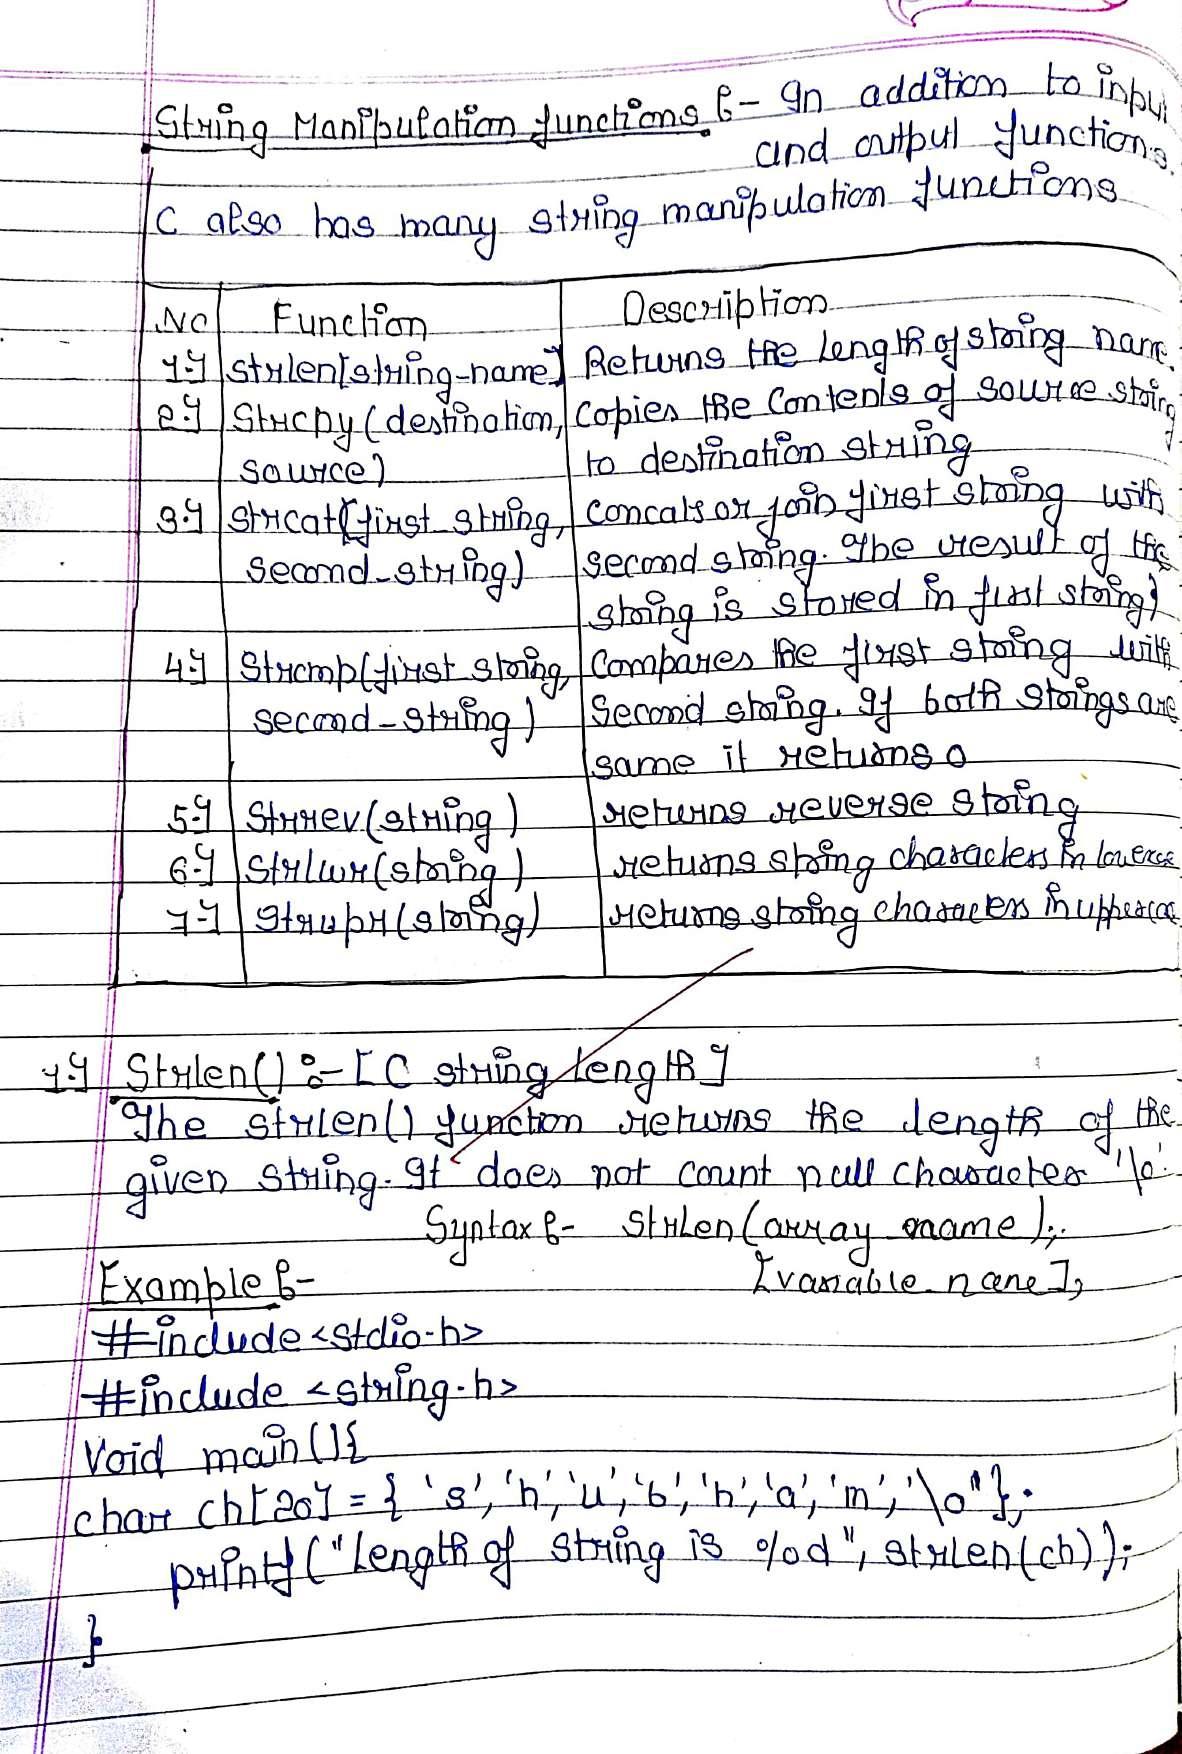 String Manipulation functions :- In addition to input
and output functions.
C also has many string manipulation functions
No Function Description
1.) strlen[string-name] Returns the length of string name.
2.) Strcpy(destination, Copies the Contents of source string
source) to destination string
3.) strcat(first string, Concats or join first string with
second-string) second string. The result of the
string is stored in first string)
4.) Strcmp(first string, Compares the first string with
second-string) Second string. If both strings are
same it returns 0
5.) Strrev(string) returns reverse string
6.) Strlwr(string) returns string characters in
7.) Strupr(string) returns string characters in
1.) Strlen() :- [C string length]
The strlen() function returns the length of the
given string. It does not count null character '\0'
Syntax :- strlen(array name);
[variable name];
Example :-
#include <stdio.h>
#include <string.h>
Void main(){
char ch[20] = { 's', 'h', 'u', 'b', 'h', 'a', 'm', '\0"};
printf("Length of string is %d", strlen(ch));
}